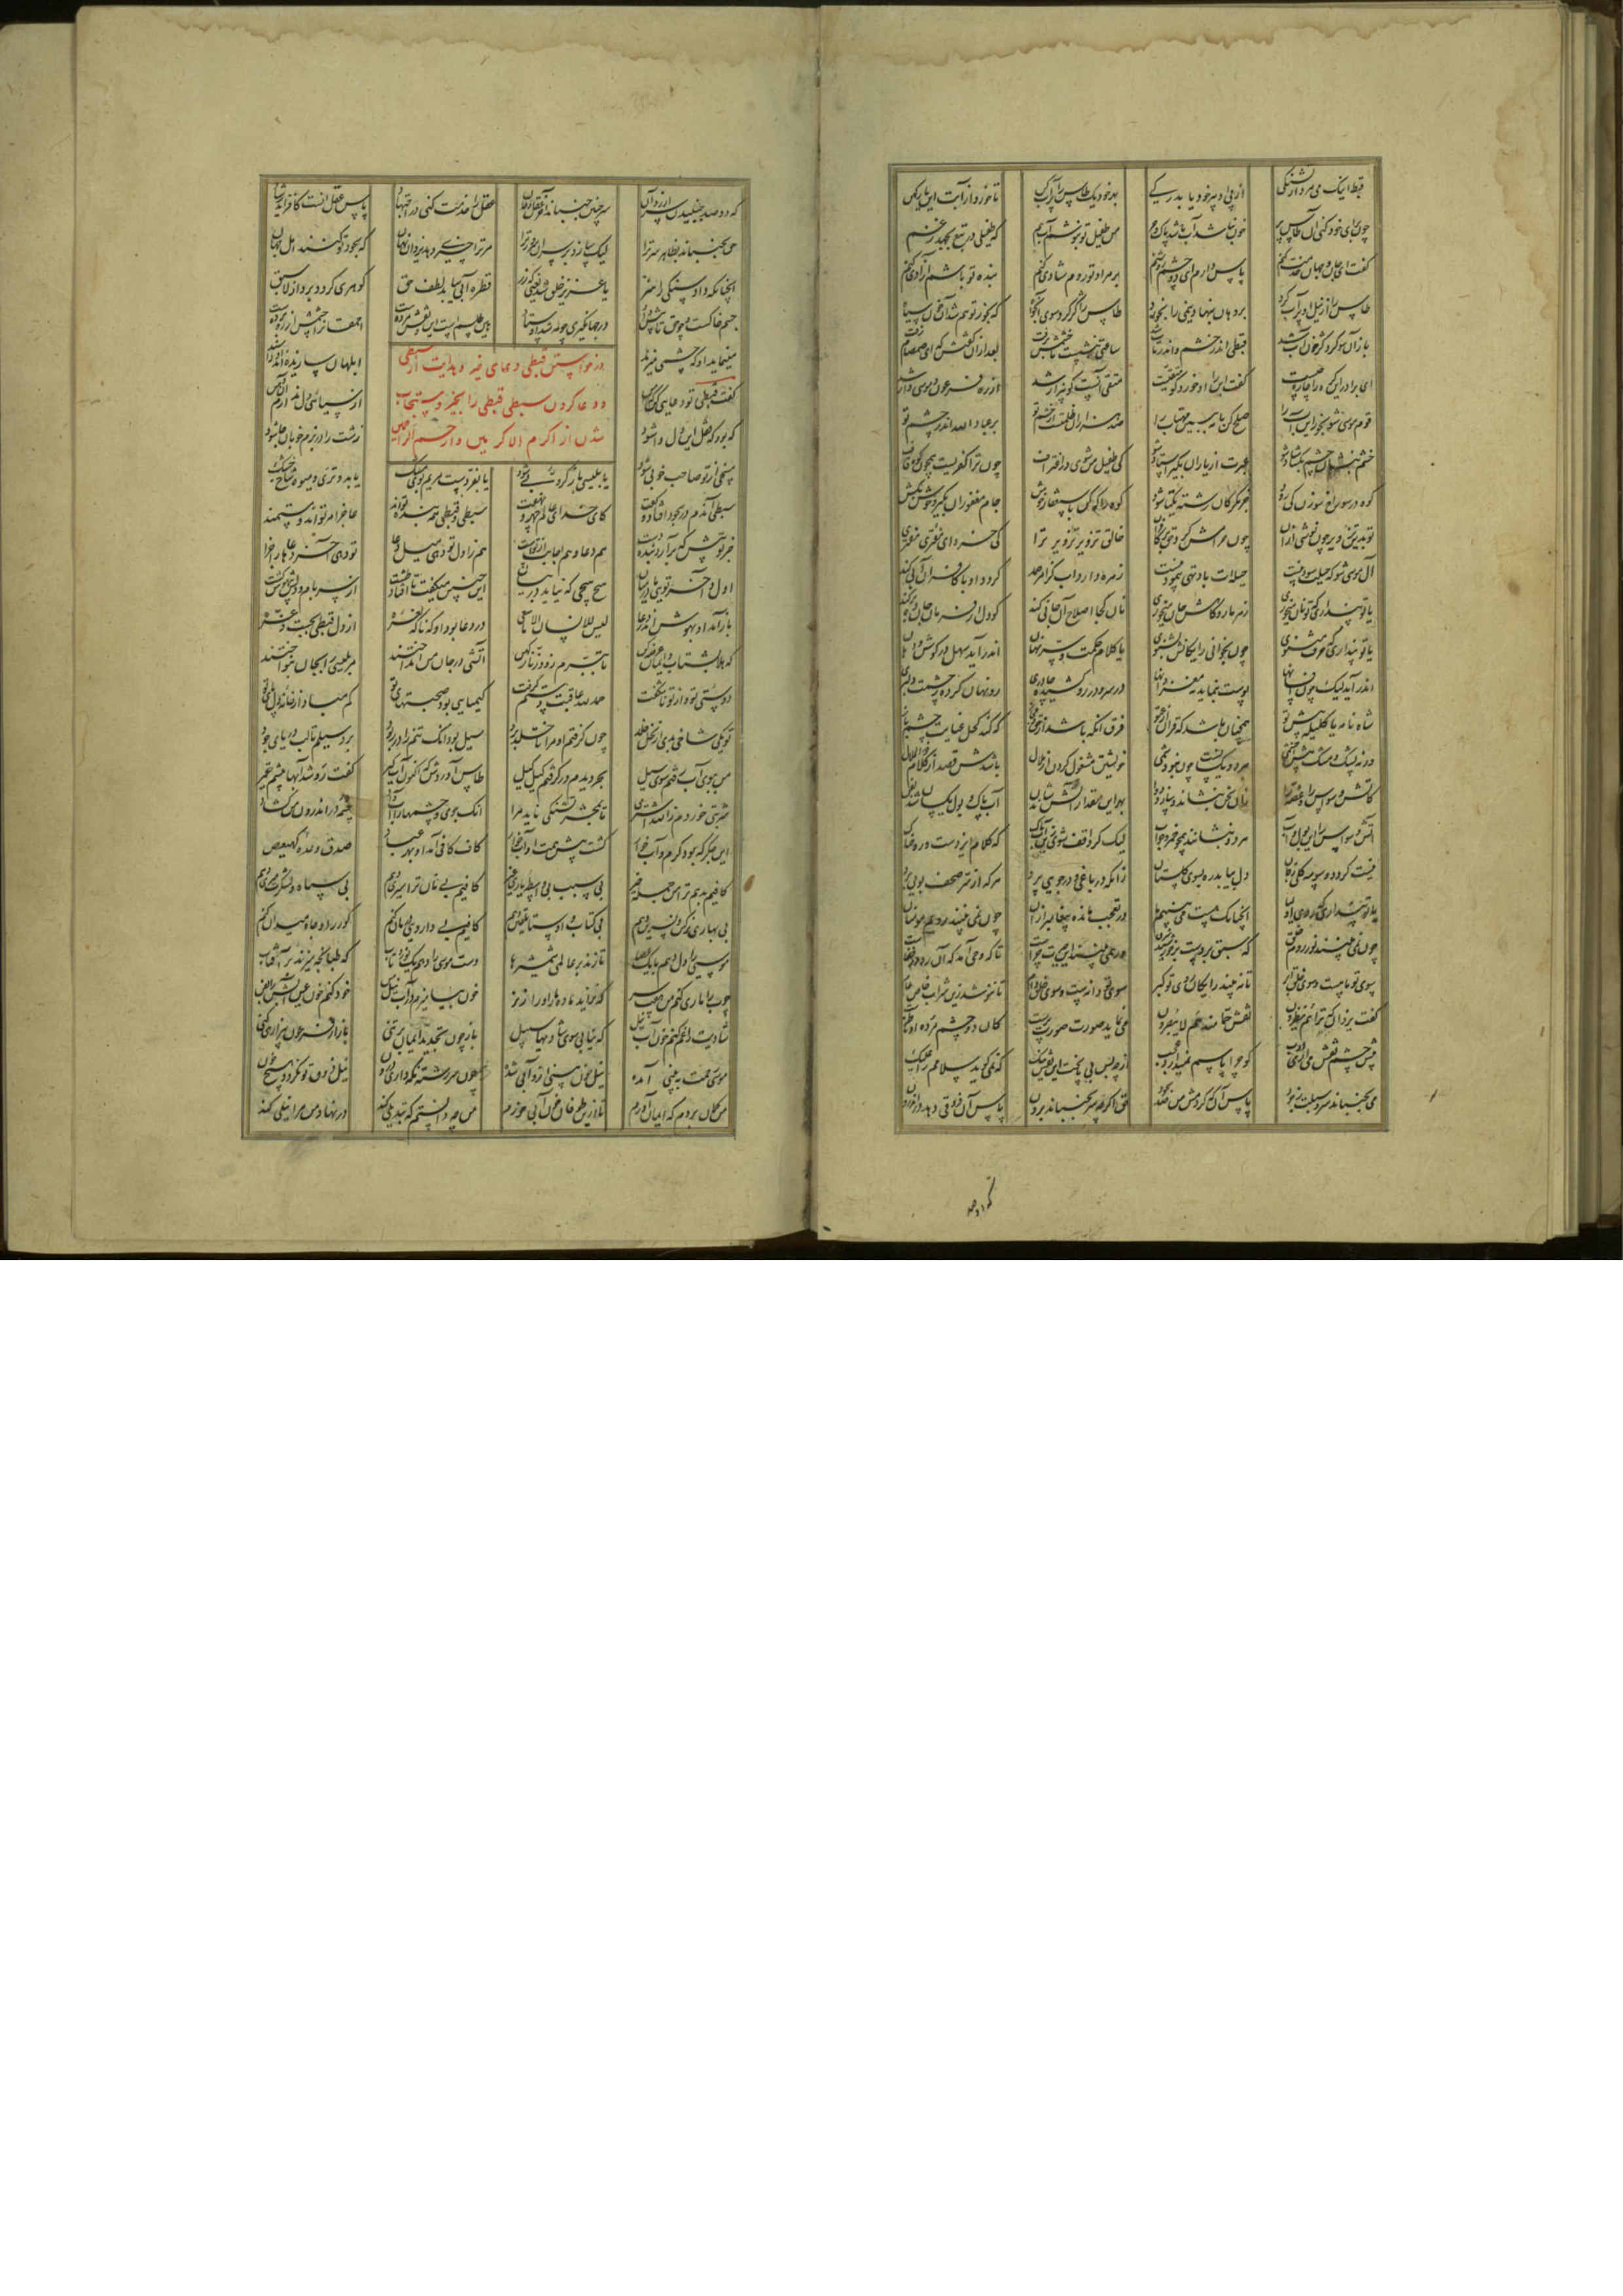 قبط اینک می مرد از تشنگی از پی ادبیر خود یا بدرگی بهر خود یک طاس را پر آب کن تا خورد از آبت این یار کهن
چون برای خود کنی آن طاس پر خون نباشد آب باشد پاک و حر من طفیل تو بنوشم آب هم که طفیلی در تبع بجهد ز غم
گفت ای جان و جهان خدمت کنم پاس دارم ای دو چشم روشنم بر مراد تو روم شادی کنم بنده تو باشم آزادی کنم
طاس را از نیل او پر آب کرد بر دهان بنهاد و نیمی را بخورد طاس را کژ کرد سوی آب خواه که بخور تو هم شد آن خون سیاه
باز آن سو کرد کژ خون آب شد قبطی اندر خشم و اندر تاب شد ساعتی بنشست تا خشمش برفت بعد از آن گفتش که ای صمصام زفت
ای برادر این گره را چاره چیست گفت این را او خورد کو متقیست متقی آنست کو بیزار شد از ره فرعون و موسی وار شد
قوم موسی شو بخور این آب را صلح کن با مه ببین مهتاب را صد هزاران ظلمتست از خشم تو بر عباد الله اندر چشم تو
خشم بنشان چشم بگشا شاد شو عبرت از یاران بگیر استاد شو کی طفیل من شوی در اغتراف چون ترا کفریست همچون کوه قاف
کوه در سوراخ سوزن کی رود جز مگر کان رشته یکتا شود کوه را که کن باستغفار خوش جام مغفوران بگیر و خوش بکش
تو بدین تزویر چون نوشی از آن چون حرامش کرد حق بر کافران خالق تزویر تزویر ترا کی خرد ای مفتری مفتری
آل موسی شو که حیلت سود نیست حیلت باد تهی پیمودنیست زهره دارد آب کز امر صمد گردد او با کافران آبی کند
یا تو پنداری که تو نان میخوری زهر مار و کاهش جان میخوری نان کجا اصلاح آن جانی کند کو دل از فرمان جانان بر کند
یا تو پنداری که حرف مثنوی چون بخوانی رایگانش بشنوی یا کلام حکمت و سر نهان اندر آید سهل در گوش و دهان
اندر آید لیک چون افسانها پوست بنماید نه مغز دانها در سر و رو در کشیده چادری رو نهان کرده ز چشمت دلبری
شاه نامه یا کلیله پیش تو همچنان باشد که قرآن از عتو فرق آنگه باشد از حق و مجاز که کند کحل عنایت چشم باز
ورنه پشک و مشک پیش اخشمی هر دو یکسانست چون نبود شمی خویشتن مشغول کردن از ملال باشدش قصد از کلام ذوالجلال
کاتش وسواس را و غصه را زان سخن بنشاند و سازد دوا بهر این مقدار آتش شاندن آب پاک و بول یکسان شد بفن
آتش وسواس را این بول و آب هر دو بنشانند همچو خمر و خواب لیک گر واقف شوی زین آب پاک که کلام ایزدست و روحناک
نیست گردد وسوسه کلی ز جان دل بیابد ره بسوی گلستان زانکه در باغی و در جویی پرد هر که از سر صحف بویی برد
یا تو پنداری که روی اولیا آنچنانک هست می بینیم ما در تعجب مانده پیغامبر از آن چون نمی بینند رویم مومنان
چون نمی بینند نور روم خلق که سبق بردست بر خورشید شرق ور همی بینند این حیرت چراست تا که وحی آمد که آن رو در خفاست
سوی تو ماهست و سوی خلق ابر تا نبیند رایگان روی تو گبر سوی تو دانه ست و سوی خلق دام تا ننوشد زین شراب خاص عام
گفت یزدان که تراهم ینظرون نقش حمامند هم لا یبصرون می نماید صورت صورت پرست کان دو چشم مرده او ناظرست
پیش چشم نقش می آری ادب کو چرا پاسم نمیدارد عجب از چه بس بی پاسخست این نقش نیک که نمی گوید سلامم را علیک
می نجنباند سر و سبلت ز جود پاس آن که کردمش من صد سجود حق اگر چه سر نجنباند برون پاس آن ذوقی دهد در اندرون
که دو صد
که دو صد جنبیدن سر ارزد آن سر چنین جنباند آخر عقل و جان عقل را خدمت کنی در اجتهاد پاس عقل آنست کافزاید رشاد
حق نجنباند بظاهر سر ترا لیک سازد بر سران سرور ترا مر ترا چیزی دهد یزدان نهان که سجود تو کنند اهل جهان
آنچنانکه داد سنگی را هنر تا عزیز خلق شد یعنی که زر قطره آبی بیابد لطف حق گوهری گردد برد از زر سبق
جسم خاکست و چو حق تابش داد در جهانگیری چو مه شد اوستاد هین طلسمست این و نقش مرده است احمقانرا چشمش از ره برده است
مینماید او که چشمی میزند ابلهان سازیده اند او را سند
در خواستن قبطی دعای خیر و هدایت از سبطی
و دعا کردن سبطی قبطی را بخیر و مستجاب
شدن از اکرم الاکرمین و ارحم الراحمین
گفت قبطی تو دعایی کن که من از سیاهی دل ندارم آن دهن
که بود که قفل این دل وا شود زشت را در بزم خوبان جا شود
مسخی از تو صاحب خوبی شود یا بلیسی باز کروبی شود یا بفر دست مریم بوی مشک یابد و تری و میوه شاخ خشک
سبطی آن دم در سجود افتاد و گفت کای خدای عالم جهر و نهفت سبطی و قبطی همه بنده تواند عاجز امر تواند و مستمند
جز تو پیش که بر آرد بنده دست هم دعا و هم اجابت از توست هم ز اول تو دهی میل دعا تو دهی آخر دعاها را جزا
اول و آخر تویی ما در میان هیچ هیچی که نیاید در بیان این چنین میگفت تا افتاد طشت از سر بام و دلش بیهوش گشت
باز آمد او بهوش اندر دعا لیس للانسان الا ما سعی در دعا بود او که ناگه نعره از دل قبطی بجست و غره
که هلا بشتاب و ایمان عرضه کن تا ببرم زود زنار کهن آتشی در جان من انداختند مر بلیسی را بجان بنواختند
دوستی تو و از تو ناشکفت حمد لله عاقبت دستم گرفت کیمیایی بود صحبتهای تو کم مباد از خانه دل پای تو
تو یکی شاخی بدی از نخل خلد چون گرفتم او مرا تا خلد برد سیل بود آنک تنم را در ربود برد سیلم تا لب دریای جود
من ببوی آب رفتم سوی سیل بحر دیدم در گرفتم کیل کیل طاس آوردش که اکنون آب گیر گفت رو شد آبها پیشم حقیر
شربتی خوردم ز الله اشتری تا بمحشر تشنگی ناید مرا آنک جوی و چشمها را آب داد چشمه در اندرون من گشاد
این جگر که بود گرم و آب خوار گشت پیش همت او آب خوار کاف کافی آمد او بهر عباد صدق وعده کهیعص
کافیم بدهم ترا من جمله خیر بی سبب بی واسطه یاری غیر کافیم بی نان ترا سیری دهم بی سپاه و لشکرت میری دهم
بی بهاری نرگس و نسرین دهم بی کتاب و اوستا تلقین دهم کافیم بی دارویی درمان کنم گور را و چاه را میدان کنم
موسیی را دل دهم با یک عصا تا زند بر عالمی شمشیرها دست موسی را دهم یک نور و تاب که طپانچه میزند بر آفتاب
چوب را ماری کنم من هفت سر که نزاید ماده مار او را ز نر خون نیامیزم در آب نیل من خود کنم خون عین آبش را بفن
شادیت را غم کنم چون آب نیل که نیابی سوی شادیها سبیل باز چون تجدید ایمان بر تنی باز از فرعون بیزاری کنی
موسی رحمت ببینی آمده نیل خون بینی ازو آبی شده چون سر رشته نگه داری درون نیل ذوق تو نگردد هیچ خون
من گمان بردم که ایمان آورم تا ازین طوفان خون آبی خورم من چه دانستم که تبدیلی کند در نهاد من مرا نیلی کند